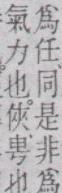 爲任同是非爲
氣力也俠甹也